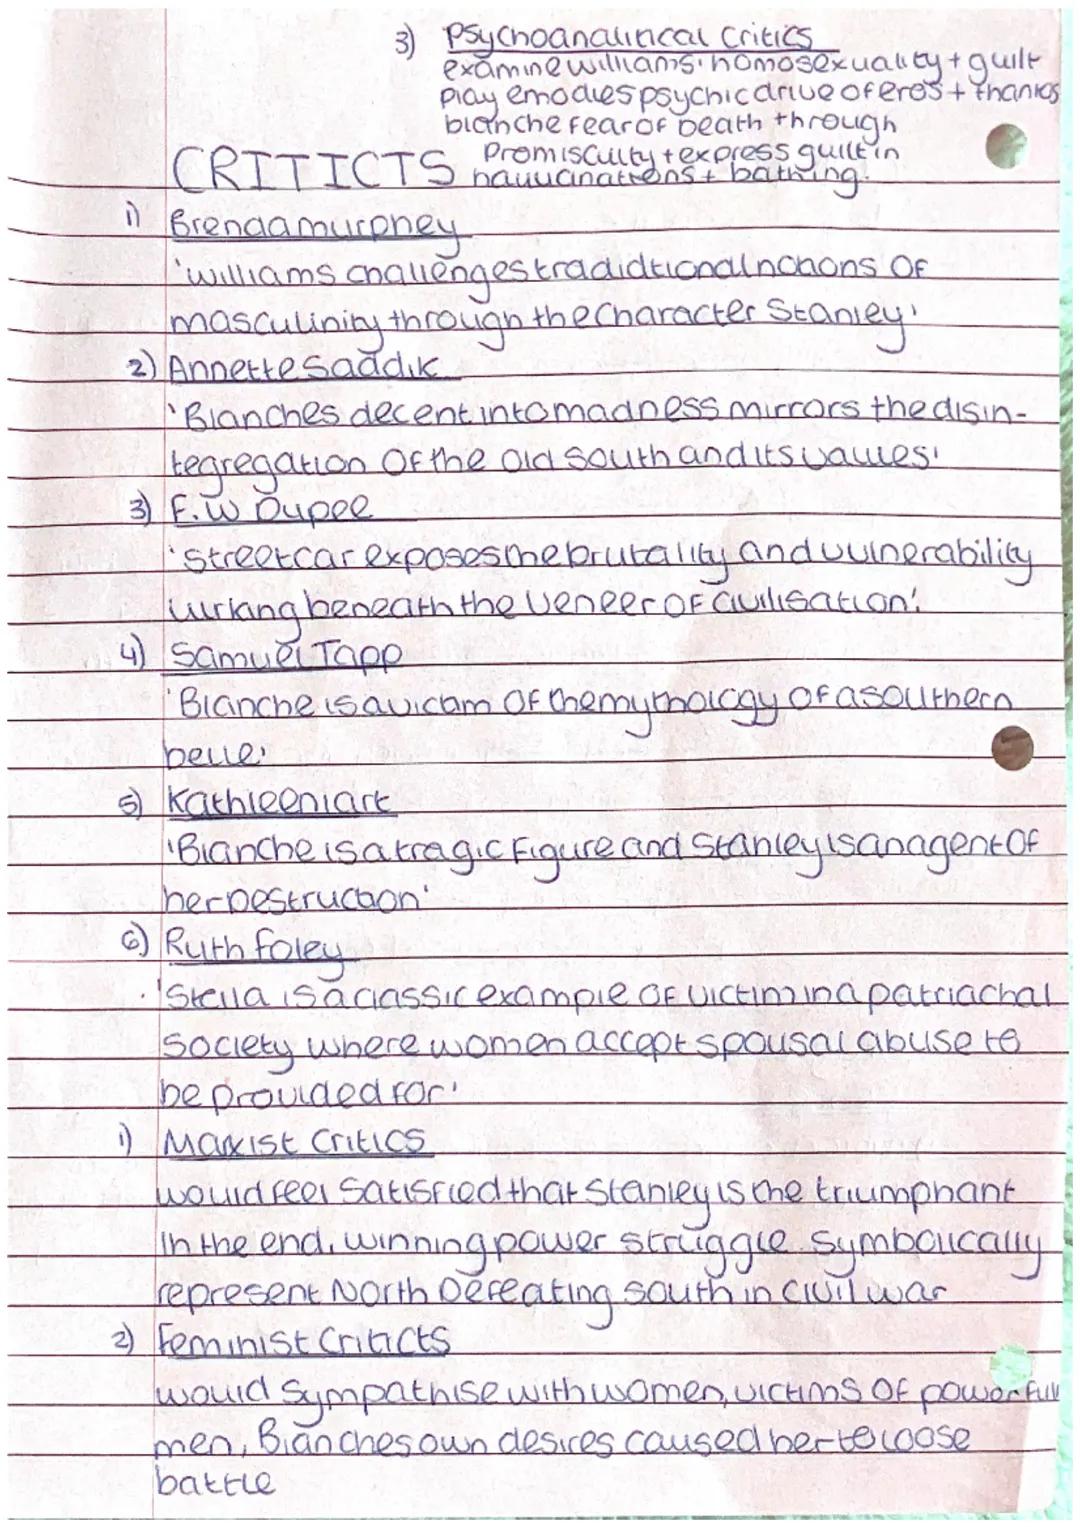 3) Psychoanalitical Critics
examine williams' homosexuality + guilt
play emodies psychic drive of eros + thantos
blanche fear of Death through
Promiscuity + express guilt in
hauucinations + bathing.
CRITICTS
1) Brenda murphey
'williams challenges tradidtional notions OF
masculinity through the Character Stanley'
2) Annette Saddik
'Blanches decent into madness mirrors the disin-
tegregation Of the Old South and its values'
3) F.W Dupee
'streetcar exposes the brutality and vulnerability
lurking beneath the Veneer OF civilisation'.
4) Samuel Tapp
'Blanche is a victim OF the mythology OF a southern
belle'
5) Kathleen lart
'Blanche is a tragic Figure and Stanley is an agent OF
her Destruction'
6) Ruth foley
'Stella is a classic example OF victim in a patriachal
society where women accept spousal abuse to
be provided for'
1) Marxist Critics
would feel Satisfied that Stanley is the triumphant
in the end, winning power struggle. Symbolically
represent North Defeating south in civil war
2) Feminist Criticts
would Sympathise with women, victims OF powerfull
men, Blanches own desires caused her to loose
battle